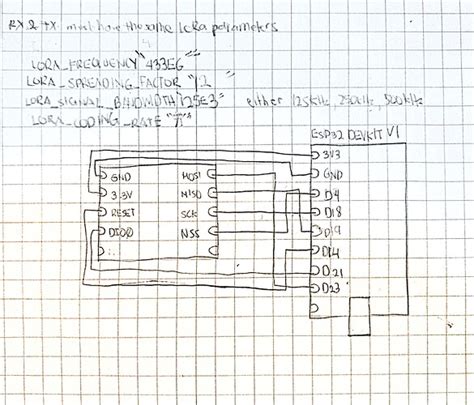 RX & TX must have the same LoRa parameters
LORA_FREQUENCY "433E6"
LORA_SPREADING_FACTOR "12"
LORA_SIGNAL_BANDWIDTH "125E3" either 125kHz, 250kHz, 500kHz
LORA_CODING_RATE
ESP32 DEVKIT V1
GND MOSI
3.3V MISO
RESET SCK
DIO0 NSS
3V3
GND
D4
D18
D19
D14
D21
D23